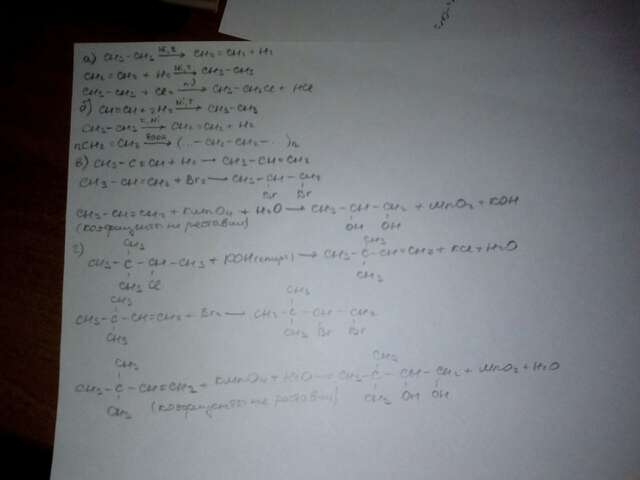 а) CH3-CH3 Ni,t → CH2=CH2 + H2
CH2=CH2 + H2 Ni,t → CH3-CH3
CH3-CH3 + Cl2 → CH3-CH2Cl + HCl
б) CH≡CH + 2H2 Ni,t → CH3-CH3
CH3-CH3 t,Ni → CH2=CH2 + H2
nCH2=CH2 → (...-CH2-CH2-...)n
в) CH3-C≡CH + H2 → CH3-CH=CH2
CH3-CH=CH2 + Br2 → CH3-CH-CH2
Br Br
CH3-CH=CH2 + KMnO4 + H2O → CH3-CH-CH2 + MnO2 + KOH
OH OH
(коэфициенты не раставил)
г)
CH3 CH3
CH3-C-CH-CH3 + KOH(спирт) → CH3-C-CH=CH2 + KCl + H2O
CH3 Cl CH3
CH3 CH3
CH3-C-CH=CH2 + Br2 → CH3-C-CH-CH2
CH3 CH3 Br Br
CH3 CH3
CH3-C-CH=CH2 + KMnO4 + H2O → CH3-C-CH-CH2 + MnO2 + H2O
CH3 CH3 OH OH
(коэфициенты не раставил)